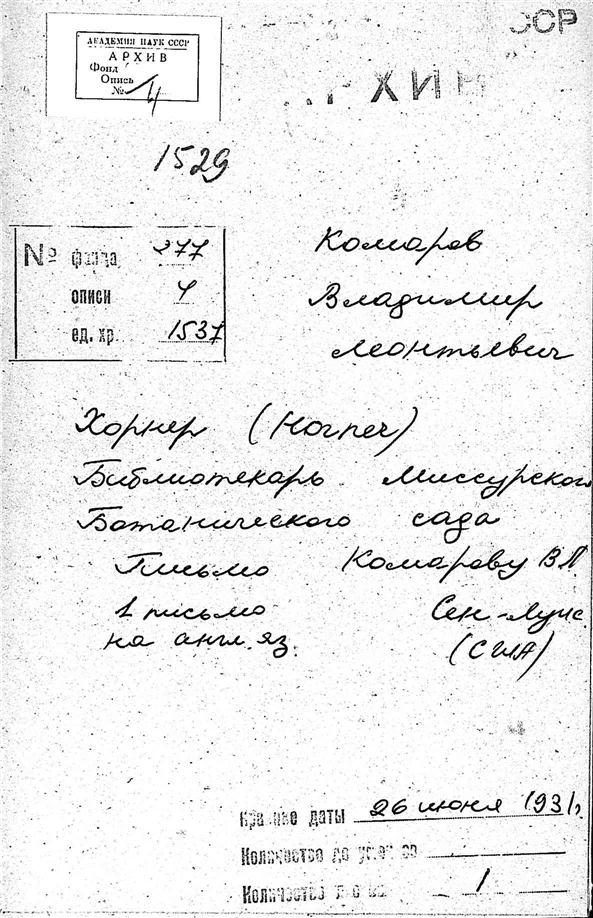 ССР
АКАДЕМИЯ НАУК СССР
АРХИВ
Фонд
Опись
№ 4
АРХИВ
1529
№ фонда 277
описи 4
ед. хр. 1537
Комаров
Владимир
Леонтьевич
Хорнер (Horner)
Библиотекарь Миссурского
Ботанического сада
Письмо Комарову В Л.
1 письмо Сен-Луис
на англ. яз. (США)
Крайние даты 26 июня 1931 г.
Количество
Количество 1